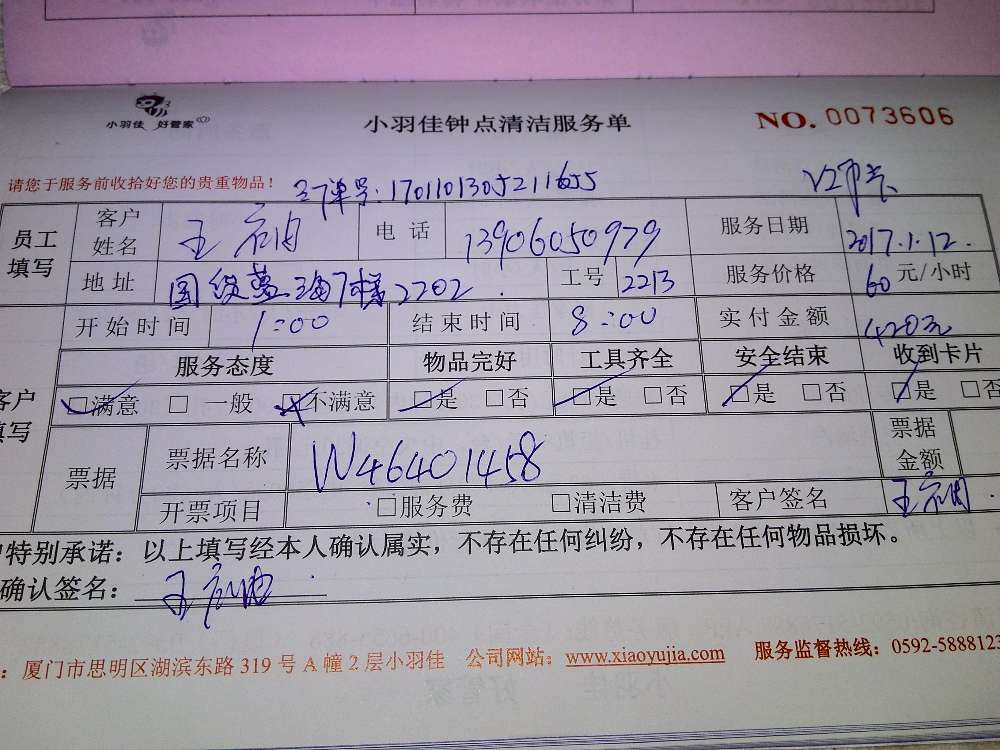 小羽佳 好管家 小羽佳钟点清洁服务单 NO. 0073606
请您于服务前收拾好您的贵重物品！ 单号:17011013052111655
员工填写 客户姓名 王 电话 13906050979 服务日期 2017.1.12.
地址 2202 工号 2213 服务价格 60元/小时
开始时间 1:00 结束时间 8:00 实付金额 420元
客户填写 服务态度 物品完好 工具齐全 安全结束 收到卡片
☑满意 □一般 ☒不满意 ☑是 □否 ☑是 □否 ☑是 □否 ☑是 □否
票据 票据名称 W46401458 票据金额
开票项目 □服务费 □清洁费 客户签名 王
特别承诺：以上填写经本人确认属实，不存在任何纠纷，不存在任何物品损坏。
确认签名： 王
：厦门市思明区湖滨东路319号A幢2层小羽佳 公司网站：www.xiaoyujia.com 服务监督热线：0592-5888123